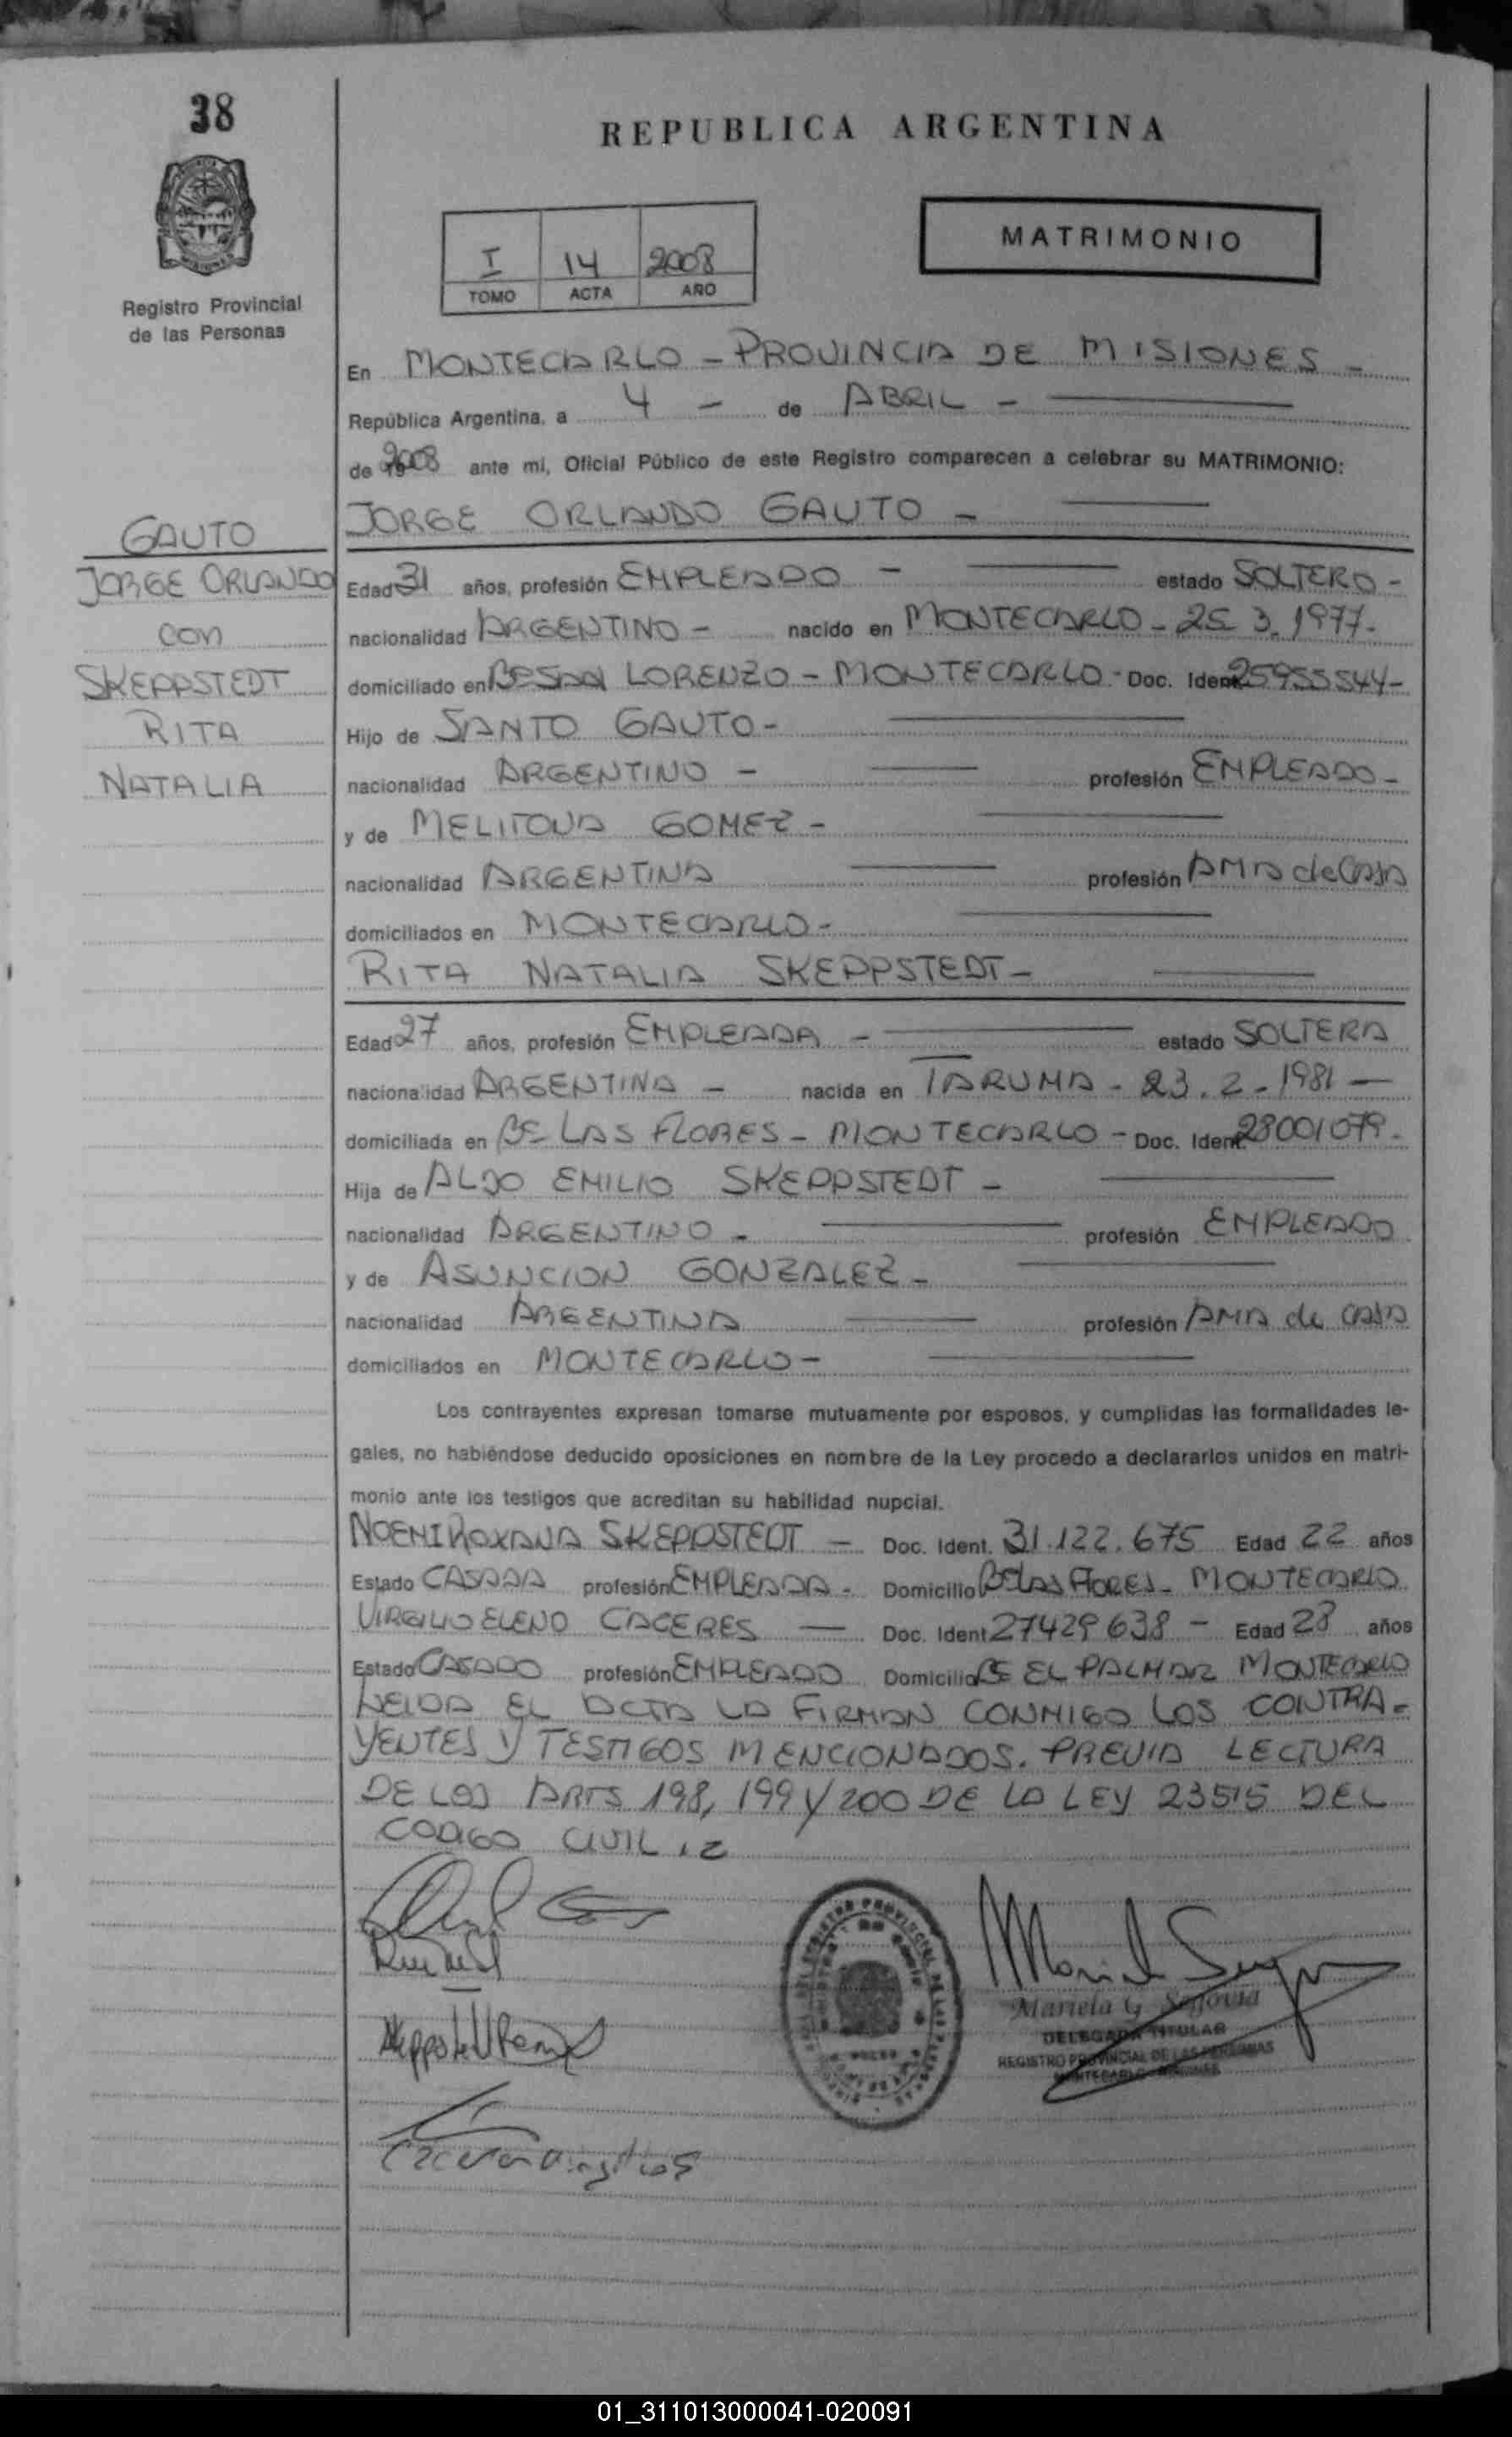 38
REPUBLICA ARGENTINA
MATRIMONIO
I 14 2008
TOMO ACTA AÑO
Registro Provincial
de las Personas
En MONTECARLO - PROVINCIA DE MISIONES -
República Argentina, a 4 - de ABRIL -
de 2008 ante mi, Oficial Público de este Registro comparecen a celebrar su MATRIMONIO:
JORGE ORLANDO GAUTO -
GAUTO
JORGE ORLANDO
con
SKEPPSTEDT
RITA
NATALIA
Edad 31 años, profesión EMPLEADO - estado SOLTERO -
nacionalidad ARGENTINO - nacido en MONTECARLO - 25.3.1977.
domiciliado en Bº SAN LORENZO - MONTECARLO - Doc. Ident. 25955544 -
Hijo de SANTO GAUTO -
nacionalidad ARGENTINO - profesión EMPLEADO -
y de MELITONA GOMEZ -
nacionalidad ARGENTINA profesión AMA de CASA
domiciliados en MONTECARLO -
RITA NATALIA SKEPPSTEDT -
Edad 27 años, profesión EMPLEADA - estado SOLTERA
nacionalidad ARGENTINA - nacida en TARUMA - 23.2-1981 -
domiciliada en Bº LAS FLORES - MONTECARLO - Doc. Ident. 28001079 -
Hija de ALDO EMILIO SKEPPSTEDT -
nacionalidad ARGENTINO - profesión EMPLEADO
y de ASUNCION GONZALEZ -
nacionalidad ARGENTINA profesión AMA de CASA
domiciliados en MONTECARLO -
Los contrayentes expresan tomarse mutuamente por esposos, y cumplidas las formalidades le-
gales, no habiéndose deducido oposiciones en nombre de la Ley procedo a declararlos unidos en matri-
monio ante los testigos que acreditan su habilidad nupcial.
NOEMI ROXANA SKEPPSTEDT - Doc. Ident. 31.122.675 Edad 22 años
Estado CASADA profesión EMPLEADA - Domicilio Bº LAS FLORES - MONTECARLO
VIRGILIO ELENO CACERES - Doc. Ident 27429638 - Edad 28 años
Estado CASADO profesión EMPLEADO Domicilio Bº EL PALMAR MONTECARLO
LEIDA EL ACTA LA FIRMAN CONMIGO LOS CONTRA-
YENTES Y TESTIGOS MENCIONADOS. PREVIA LECTURA
DE LOS ARTS 198, 199 Y 200 DE LA LEY 23515 DEL
CODIGO CIVIL
Mariela G. Segovia
DELEGADA TITULAR
REGISTRO PROVINCIAL DE LAS PERSONAS
MONTECARLO - MISIONES
01_311013000041-020091